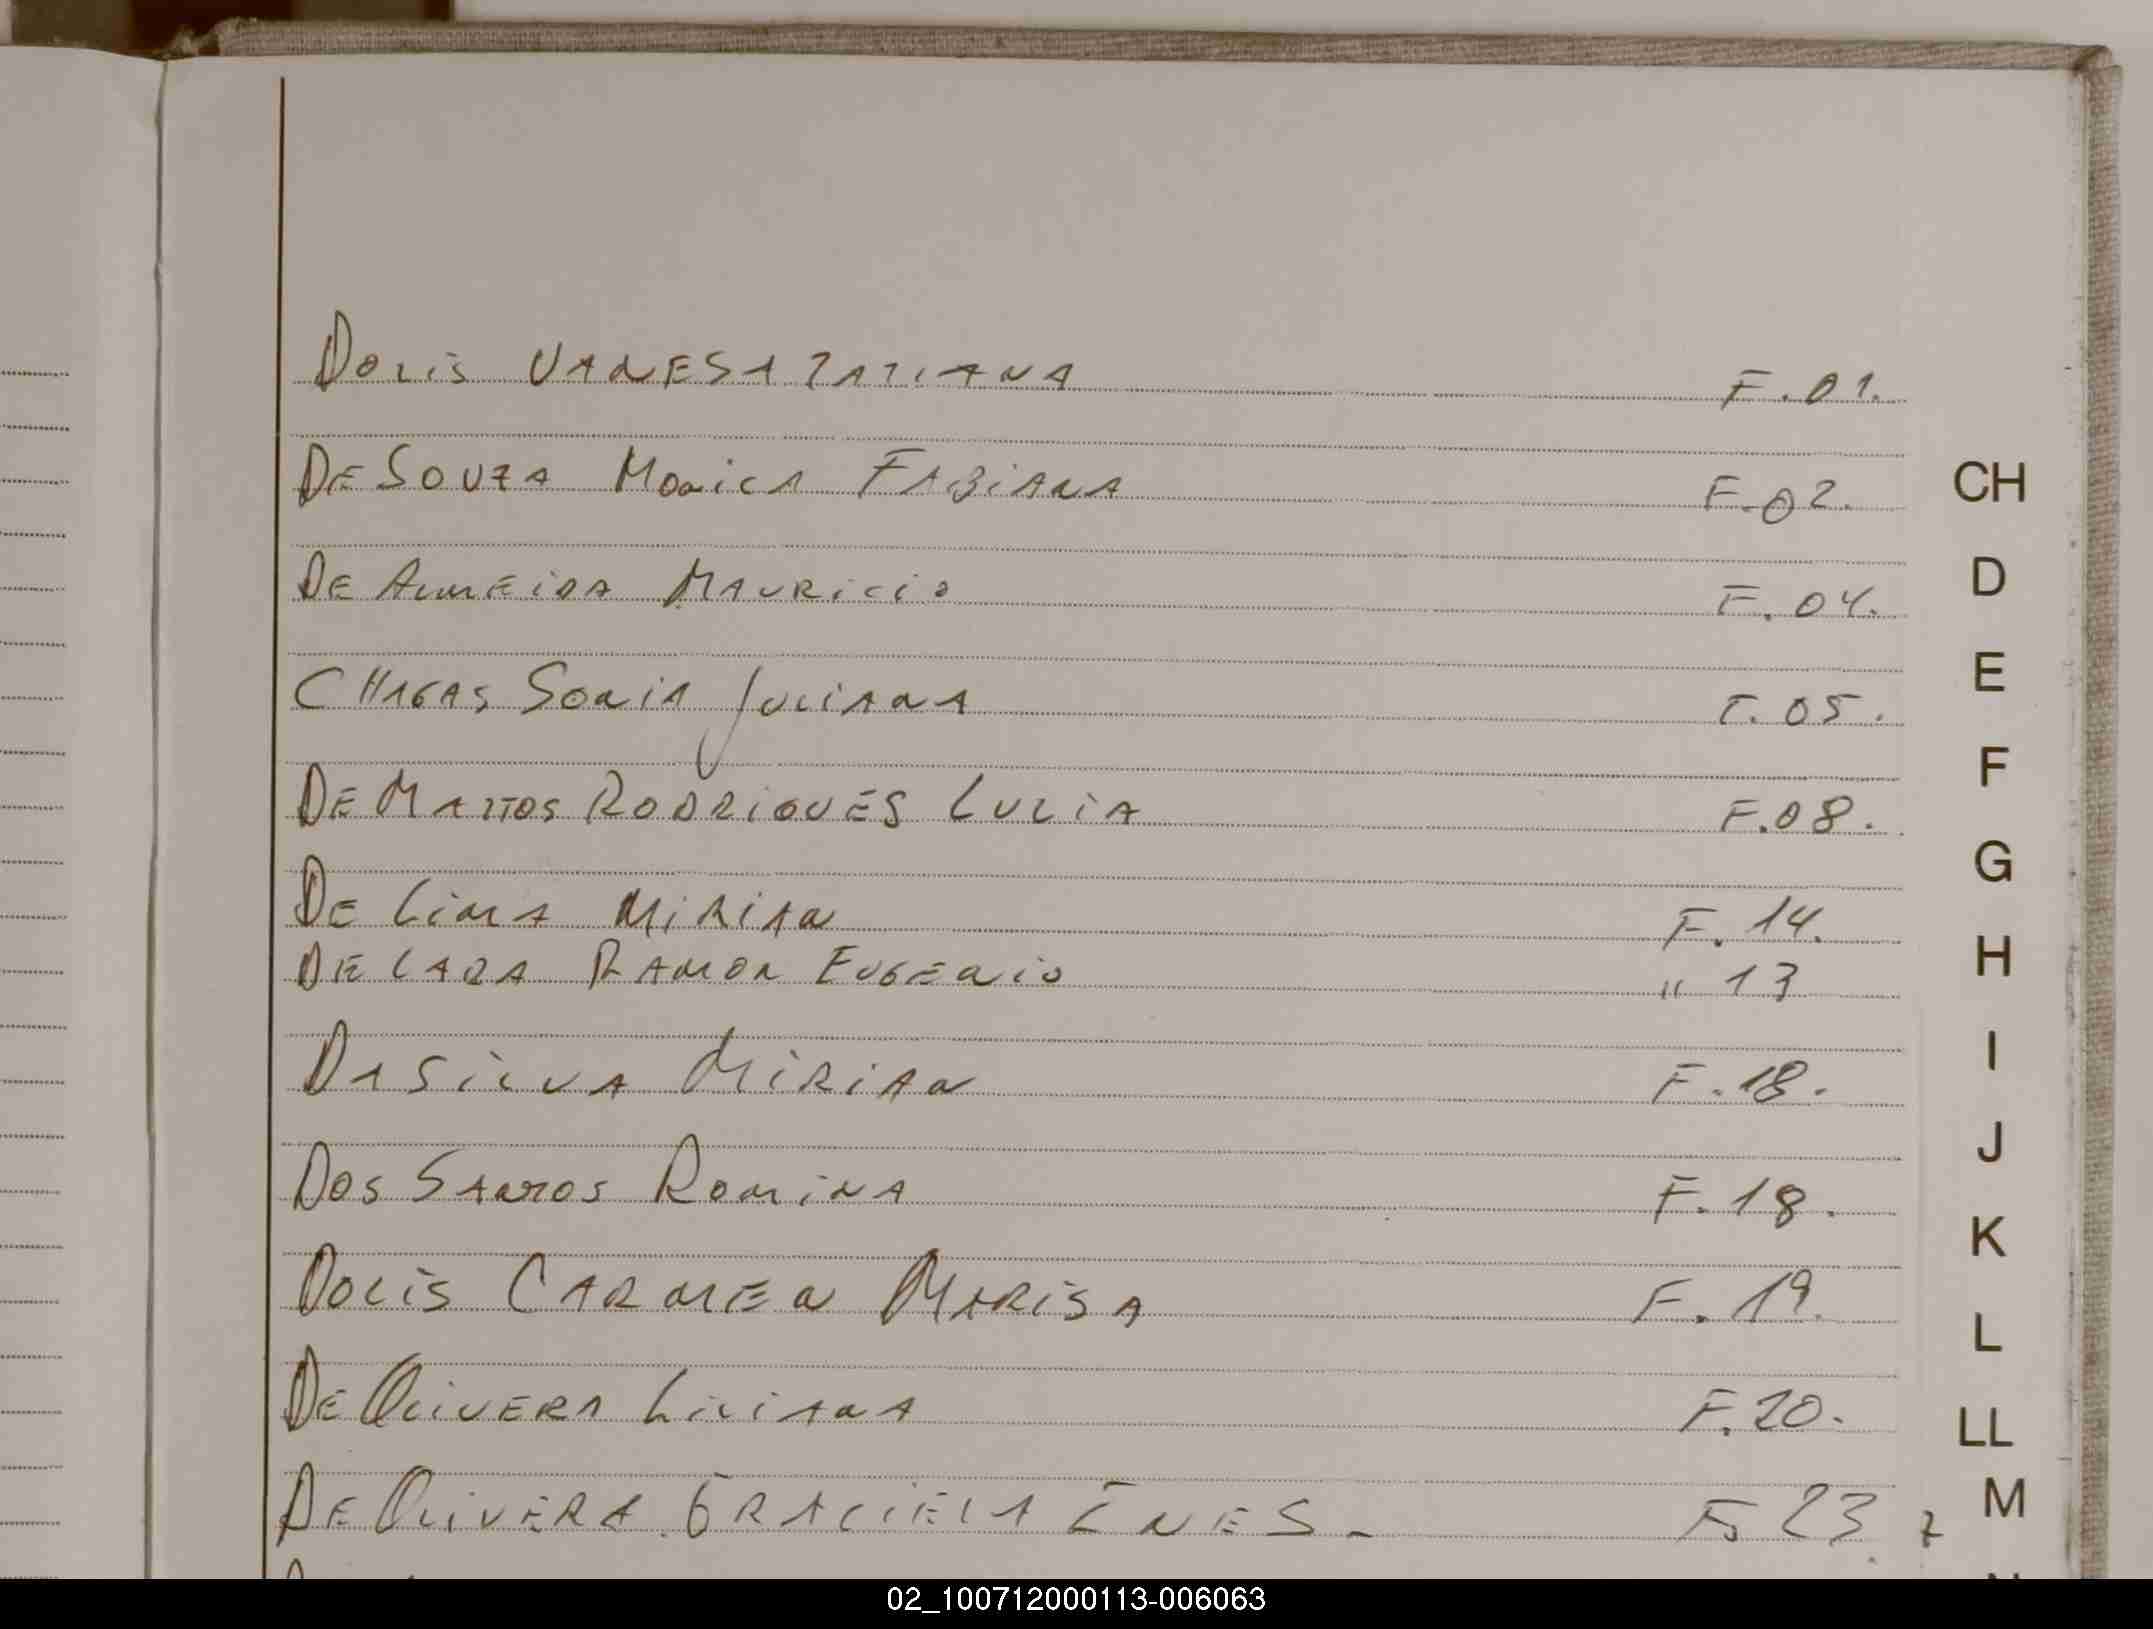 DOLIS VANESA TATIANA F.01.
DE SOUZA MONICA FABIANA F.02.
DE ALMEIDA MAURICIO F.04.
CHAGAS SONIA JULIANA F.05.
DE MATTOS RODRIGUES LUCIA F.08.
DE LIMA MIRIAN F.14.
DE LARA RAMON EUGENIO " 13
DA SILVA MIRIAN F.18.
DOS SANTOS ROMINA F.18.
DOLIS CARMEN MARISA F.19.
DE OLIVERA LILIANA F.20.
DE OLIVERA GRACIELA INES. F. 23
CH
D
E
F
G
H
I
J
K
L
LL
M
02_100712000113-006063